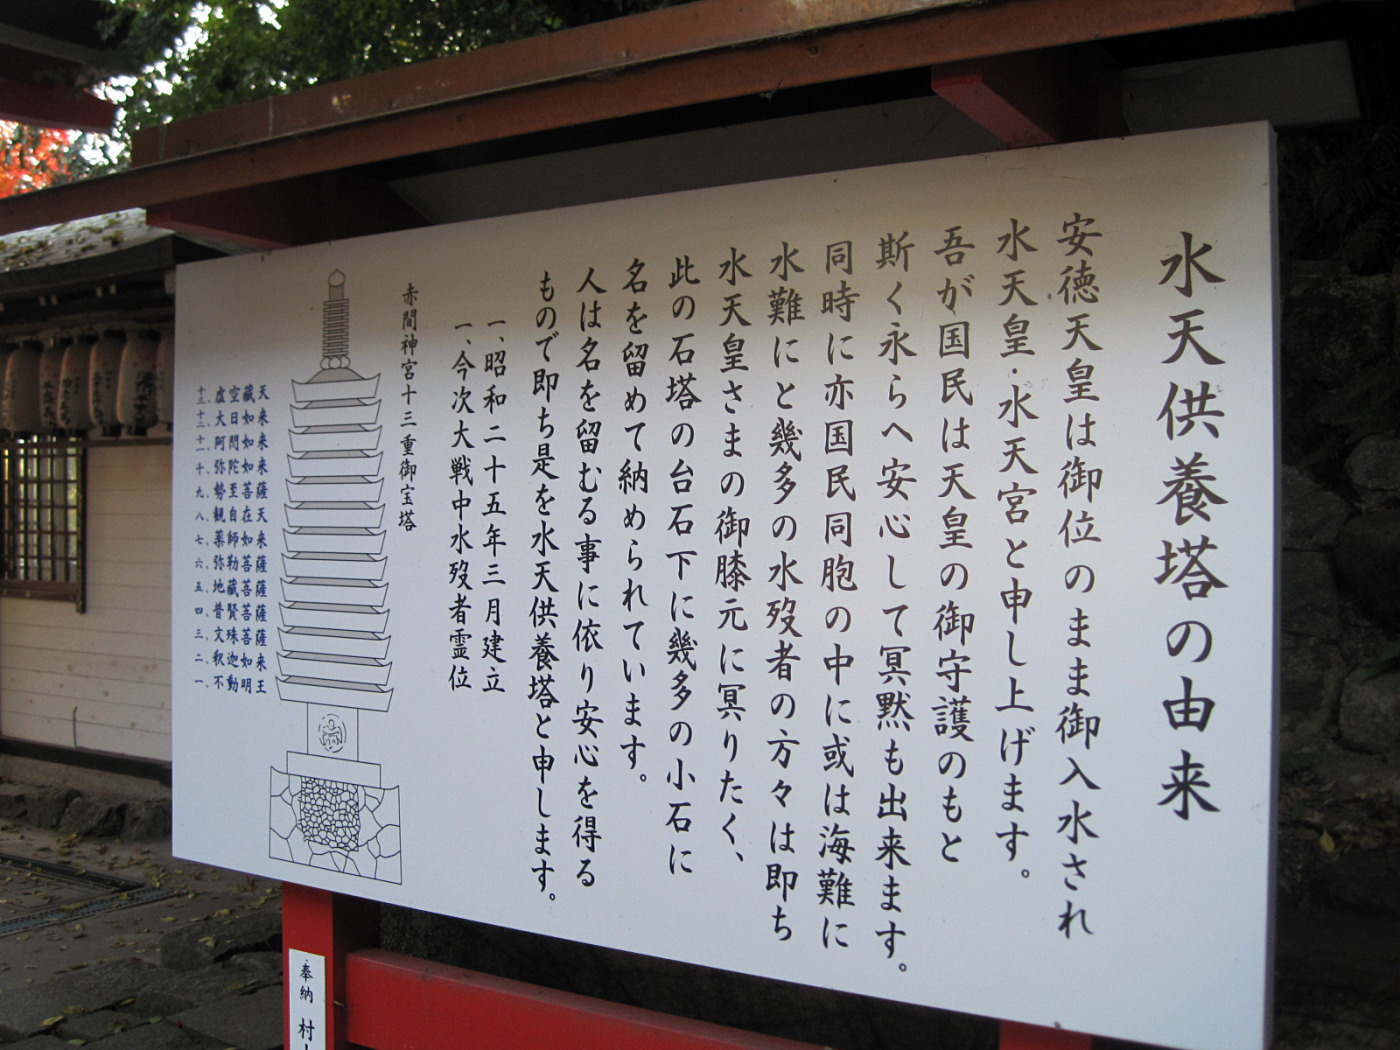 水天供養塔の由来
安徳天皇は御位のまま御入水され
水天皇・水天宮と申し上げます。
吾が国民は天皇の御守護のもと
斯く永らへ安心して冥黙も出来ます。
同時に亦国民同胞の中に或は海難に
水難にと幾多の水歿者の方々は即ち
水天皇さまの御膝元に冥りたく、
此の石塔の台石下に幾多の小石に
名を留めて納められています。
人は名を留むる事に依り安心を得る
もので即ち是を水天供養塔と申します。
一、昭和二十五年三月建立
一、今次大戦中水歿者霊位
赤間神宮十三重御宝塔
十三、虚空蔵天
十二、大日如来
十一、阿閦如来
十、弥陀如来
九、勢至菩薩
八、観自在天
七、薬師如来
六、弥勒菩薩
五、地蔵菩薩
四、普賢菩薩
三、文殊菩薩
二、釈迦如来
一、不動明王
奉納 村